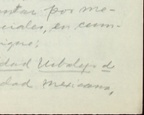 ntar por me-
ciales, en cum-
idad Urbologo de
dad mexicana,